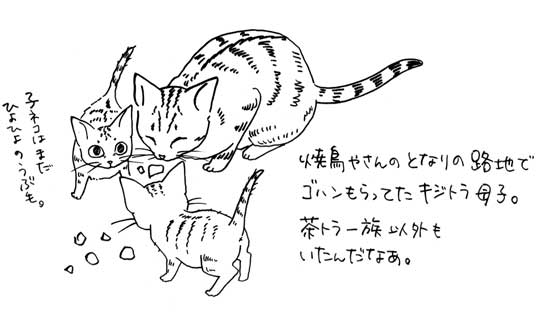 子ネコはまだ
ひよひよのうぶ毛。
焼鳥やさんのとなりの路地で
ゴハンもらってたキジトラ母子。
茶トラ一族以外も
いたんだなあ。